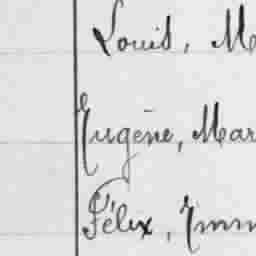 Louis, Ma
Eugène, Mar
Félix, Emm